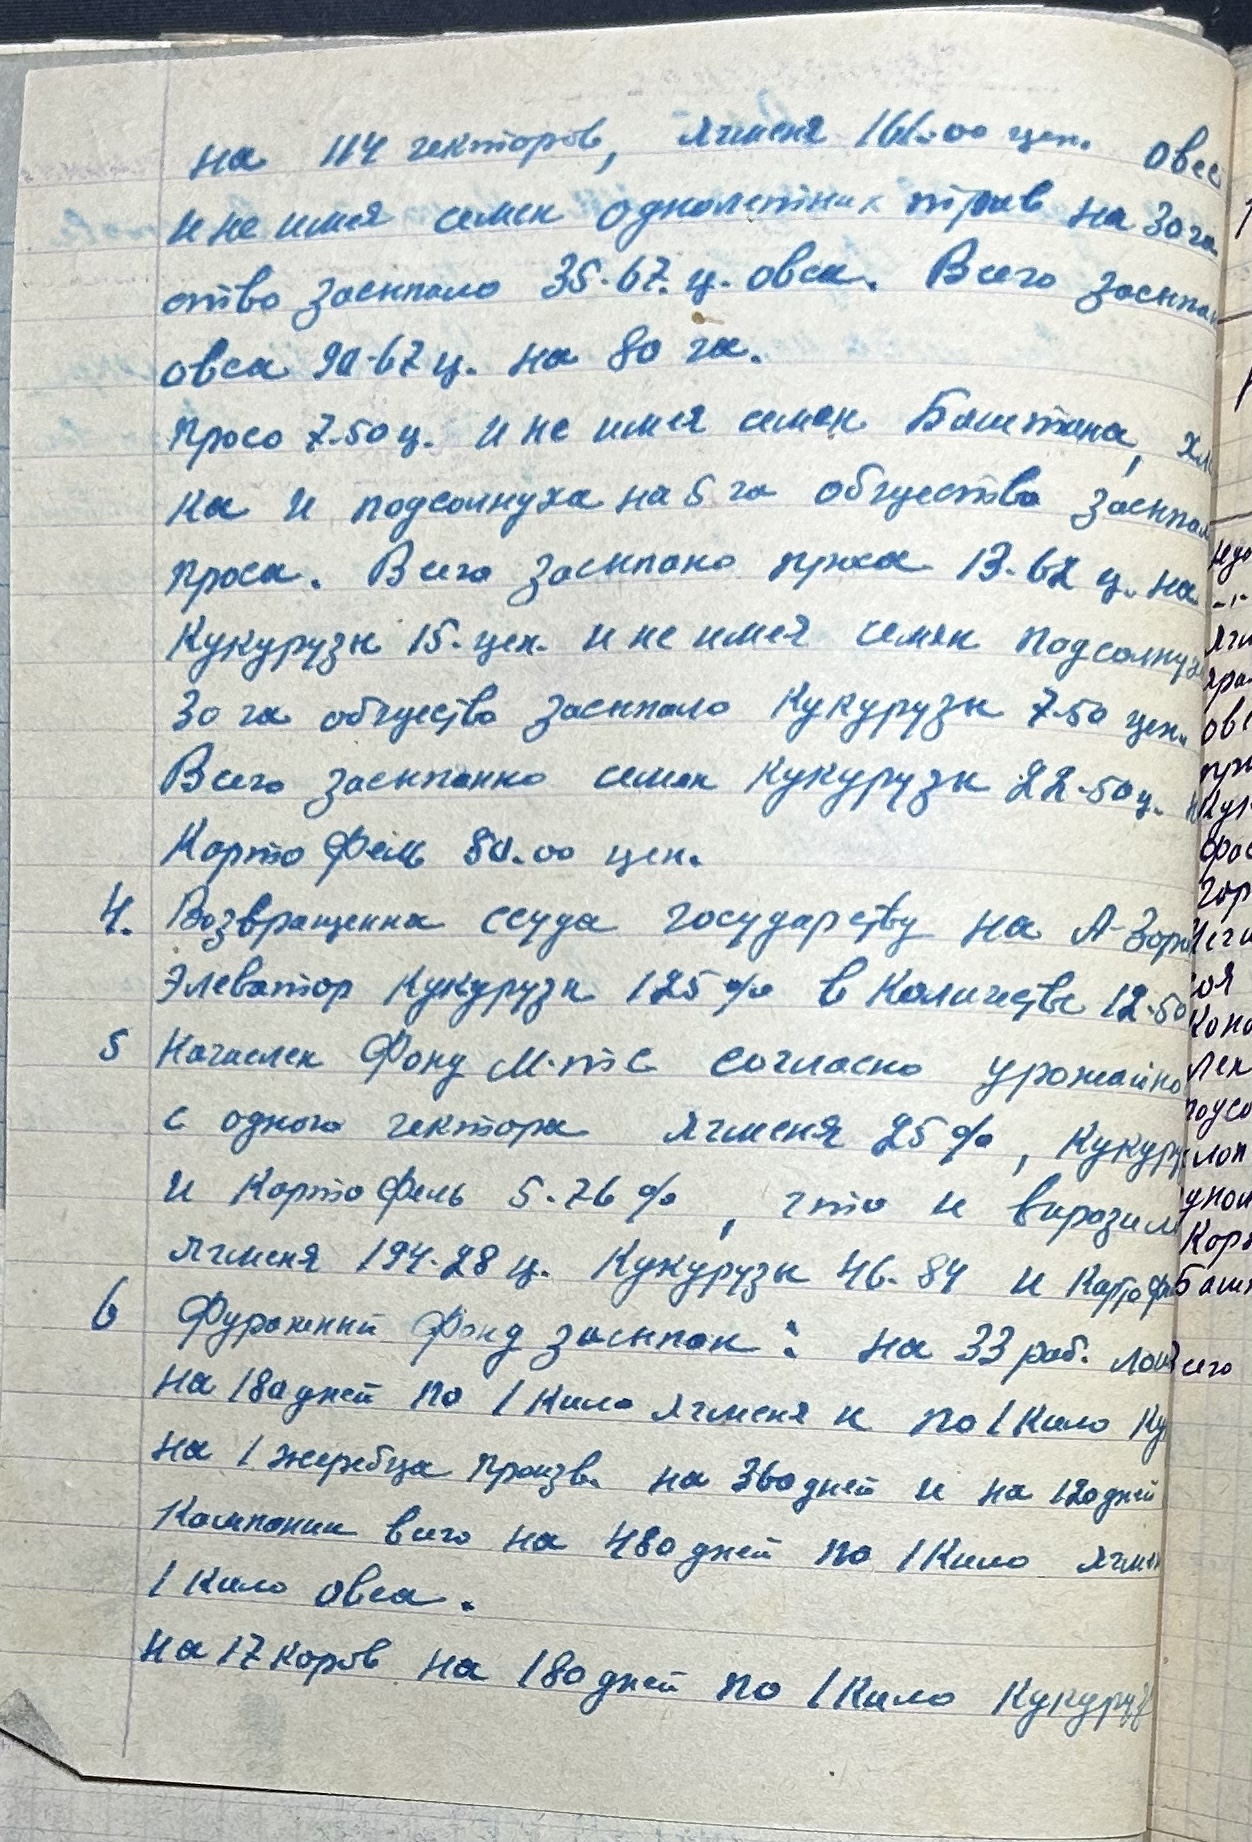 на 114 гекторов, ячменя 161.00 цен. овес
и не имея семен однолетних трав на 30 га
ство засыпало 35-67. ц. овса. Всего засыпан
овса 90-67 ц. на 80 га.
Просо 7.50 ц. и не имея семен Баштана,
ка и подсолнуха на 5 га общество засыпал
Проса. Всего засыпано проса 13-62 ц. на
Кукурузы 15. цен. и не имея семян Подсолнух
30 га общество засыпало Кукурузы 7.50 цен.
Всего засыпанно семян Кукурузы 22-50 ц. н
Картофель 50.00 цен.
4. Возвращенна ссуда государству на А-Зорн
Элеватор Кукурузы 125% в Количестве 12-50
5 Начислен Фонд М-тС согласно урожайно
с одного гектора ячменя 25%, Кукуру
и Картофель 5-76%, что и выразил
Ячменя 194-28 ц. Кукурузы 46-84 и Картофе
6 Фуражний Фонд засыпан: на 33 раб. лош
на 180 дней по 1 Кило ячменя и по 1 Кило Ку
на 1 жеребца произв. на 360 дней и на 120 дней
Кампании всего на 480 дней по 1 Кило ячмен
1 Кило овса.
На 17 коров на 180 дней по 1 Кило Кукуруз